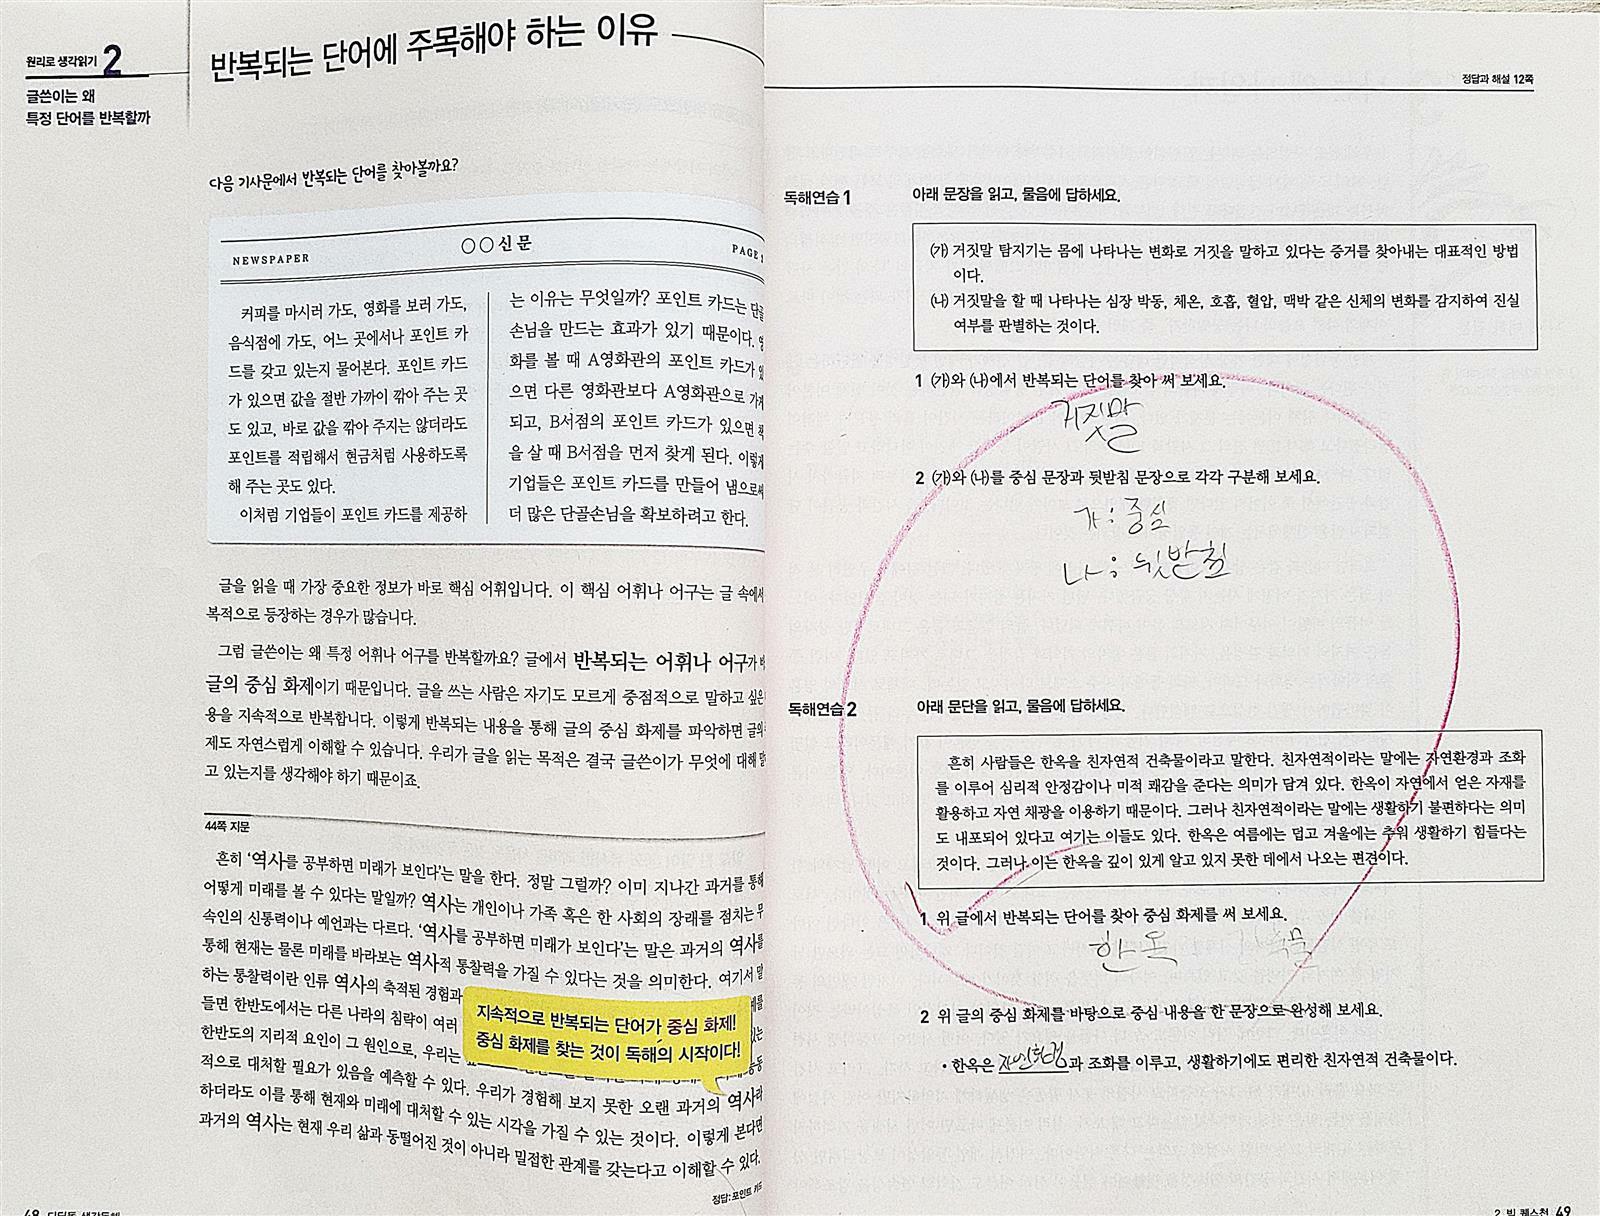 원리로 생각읽기 2
글쓴이는 왜
특정 단어를 반복할까
반복되는 단어에 주목해야 하는 이유
다음 기사문에서 반복되는 단어를 찾아볼까요?
NEWSPAPER
○○신문
PAGE
커피를 마시러 가도, 영화를 보러 가도,
음식점에 가도, 어느 곳에서나 포인트 카
드를 갖고 있는지 물어본다. 포인트 카드
가 있으면 값을 절반 가까이 깎아 주는 곳
도 있고, 바로 값을 깎아 주지는 않더라도
포인트를 적립해서 현금처럼 사용하도록
해 주는 곳도 있다.
이처럼 기업들이 포인트 카드를 제공하
는 이유는 무엇일까? 포인트 카드는 단골
손님을 만드는 효과가 있기 때문이다. 영
화를 볼 때 A영화관의 포인트 카드가 있
으면 다른 영화관보다 A영화관으로 가게
되고, B서점의 포인트 카드가 있으면 책
을 살 때 B서점을 먼저 찾게 된다. 이렇게
기업들은 포인트 카드를 만들어 냄으로써
더 많은 단골손님을 확보하려고 한다.
글을 읽을 때 가장 중요한 정보가 바로 핵심 어휘입니다. 이 핵심 어휘나 어구는 글 속에서
복적으로 등장하는 경우가 많습니다.
그럼 글쓴이는 왜 특정 어휘나 어구를 반복할까요? 글에서 반복되는 어휘나 어구가
글의 중심 화제이기 때문입니다. 글을 쓰는 사람은 자기도 모르게 중점적으로 말하고 싶은
용을 지속적으로 반복합니다. 이렇게 반복되는 내용을 통해 글의 중심 화제를 파악하면 글의
제도 자연스럽게 이해할 수 있습니다. 우리가 글을 읽는 목적은 결국 글쓴이가 무엇에 대해
고 있는지를 생각해야 하기 때문이죠.
44쪽 지문
흔히 '역사를 공부하면 미래가 보인다'는 말을 한다. 정말 그럴까? 이미 지나간 과거를 통해
어떻게 미래를 볼 수 있다는 말일까? 역사는 개인이나 가족 혹은 한 사회의 장래를 점치는 무
속인의 신통력이나 예언과는 다르다. '역사를 공부하면 미래가 보인다'는 말은 과거의 역사를
통해 현재는 물론 미래를 바라보는 역사적 통찰력을 가질 수 있다는 것을 의미한다. 여기서 말
하는 통찰력이란 인류 역사의 축적된 경험과
들면 한반도에서는 다른 나라의 침략이 여러
한반도의 지리적 요인이 그 원인으로, 우리는
적으로 대처할 필요가 있음을 예측할 수 있다. 우리가 경험해 보지 못한 오랜 과거의 역사라
하더라도 이를 통해 현재와 미래에 대처할 수 있는 시각을 가질 수 있는 것이다. 이렇게 본다면
과거의 역사는 현재 우리 삶과 동떨어진 것이 아니라 밀접한 관계를 갖는다고 이해할 수 있다.
지속적으로 반복되는 단어가 중심 화제!
중심 화제를 찾는 것이 독해의 시작이다!
정답: 포인트 카드
정답과 해설 12쪽
독해연습 1 아래 문장을 읽고, 물음에 답하세요.
㈎ 거짓말 탐지기는 몸에 나타나는 변화로 거짓을 말하고 있다는 증거를 찾아내는 대표적인 방법
이다.
㈏ 거짓말을 할 때 나타나는 심장 박동, 체온, 호흡, 혈압, 맥박 같은 신체의 변화를 감지하여 진실
여부를 판별하는 것이다.
1 ㈎와 ㈏에서 반복되는 단어를 찾아 써 보세요.
거짓말
2 ㈎와 ㈏를 중심 문장과 뒷받침 문장으로 각각 구분해 보세요.
가 : 중심
나 : 뒷받침
독해연습 2 아래 문단을 읽고, 물음에 답하세요.
흔히 사람들은 한옥을 친자연적 건축물이라고 말한다. 친자연적이라는 말에는 자연환경과 조화
를 이루어 심리적 안정감이나 미적 쾌감을 준다는 의미가 담겨 있다. 한옥이 자연에서 얻은 자재를
활용하고 자연 채광을 이용하기 때문이다. 그러나 친자연적이라는 말에는 생활하기 불편하다는 의미
도 내포되어 있다고 여기는 이들도 있다. 한옥은 여름에는 덥고 겨울에는 추워 생활하기 힘들다는
것이다. 그러나 이는 한옥을 깊이 있게 알고 있지 못한 데에서 나오는 편견이다.
1 위 글에서 반복되는 단어를 찾아 중심 화제를 써 보세요.
한옥
2 위 글의 중심 화제를 바탕으로 중심 내용을 한 문장으로 완성해 보세요.
• 한옥은 자연환경과 조화를 이루고, 생활하기에도 편리한 친자연적 건축물이다.
49